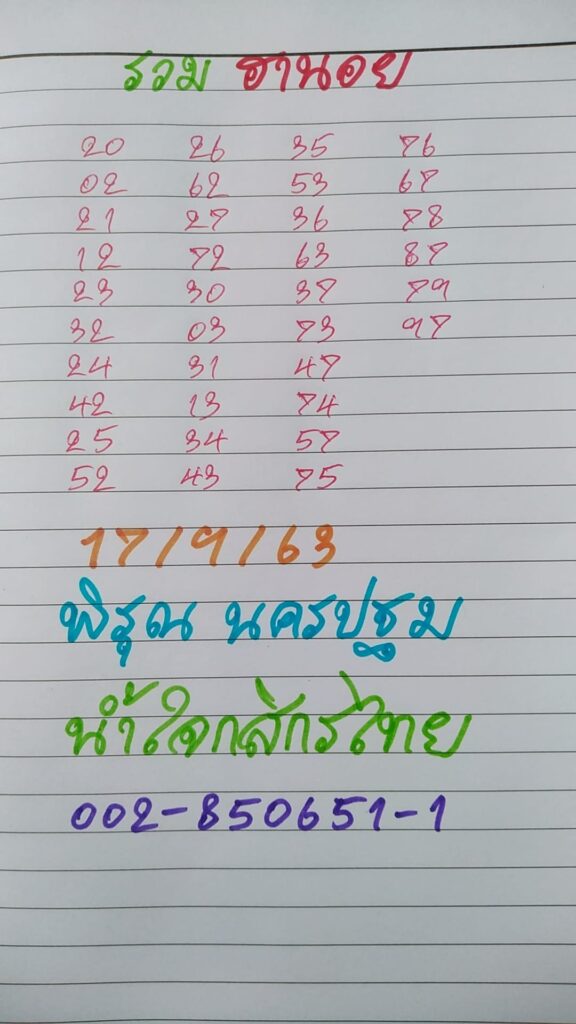 รวม ฮานอย
20 26 35 76
02 62 53 67
21 27 36 78
12 72 63 87
23 30 37 79
32 03 73 97
24 31 47
42 13 74
25 34 57
52 43 75
17/9/63
พิรุณ นครปฐม
น้ำใจกสิกรไทย
002-850651-1